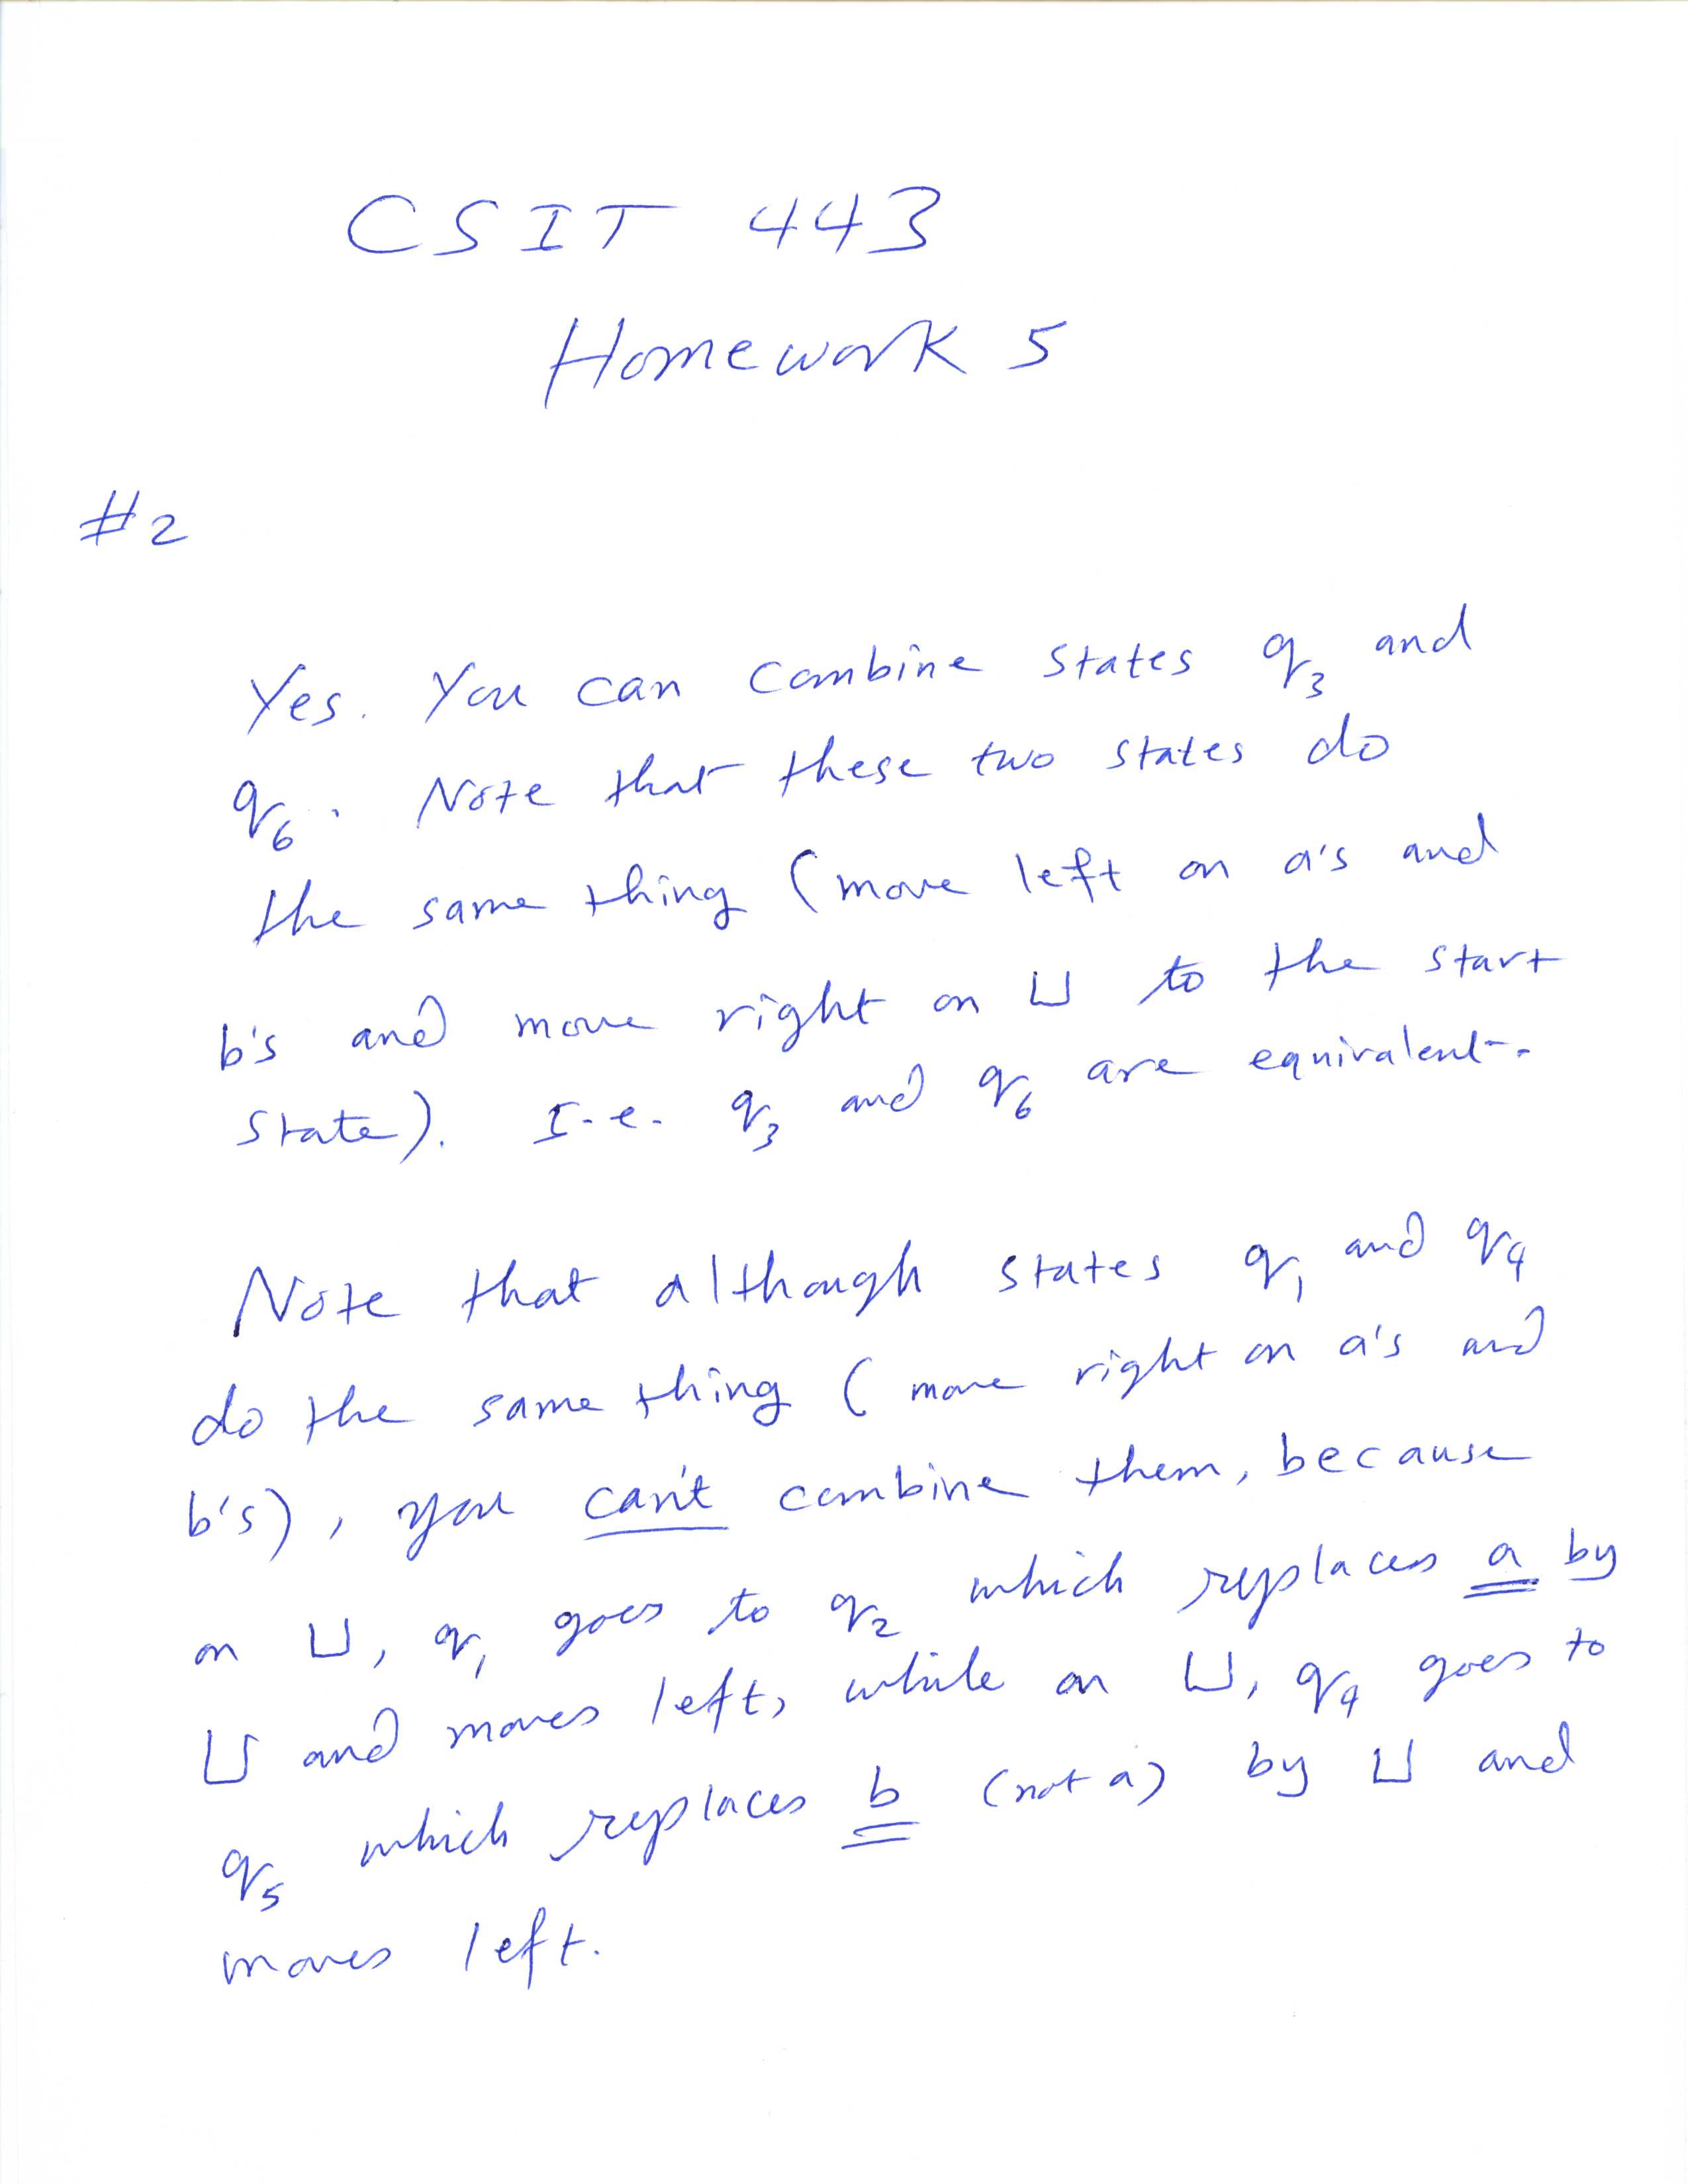 CSIT 443
Homework 5
#2
Yes. You can combine states q₃ and
q₆. Note that these two states do
the same thing (move left on a's and
b's and move right on ⊔ to the start
state). I.e. q₃ and q₆ are equivalent.
Note that although states q₁ and q₄
do the same thing (move right on a's and
b's), you can't combine them, because
on ⊔, q₁ goes to q₂ which replaces a by
⊔ and moves left, while on ⊔, q₄ goes to
q₅ which replaces b (not a) by ⊔ and
moves left.